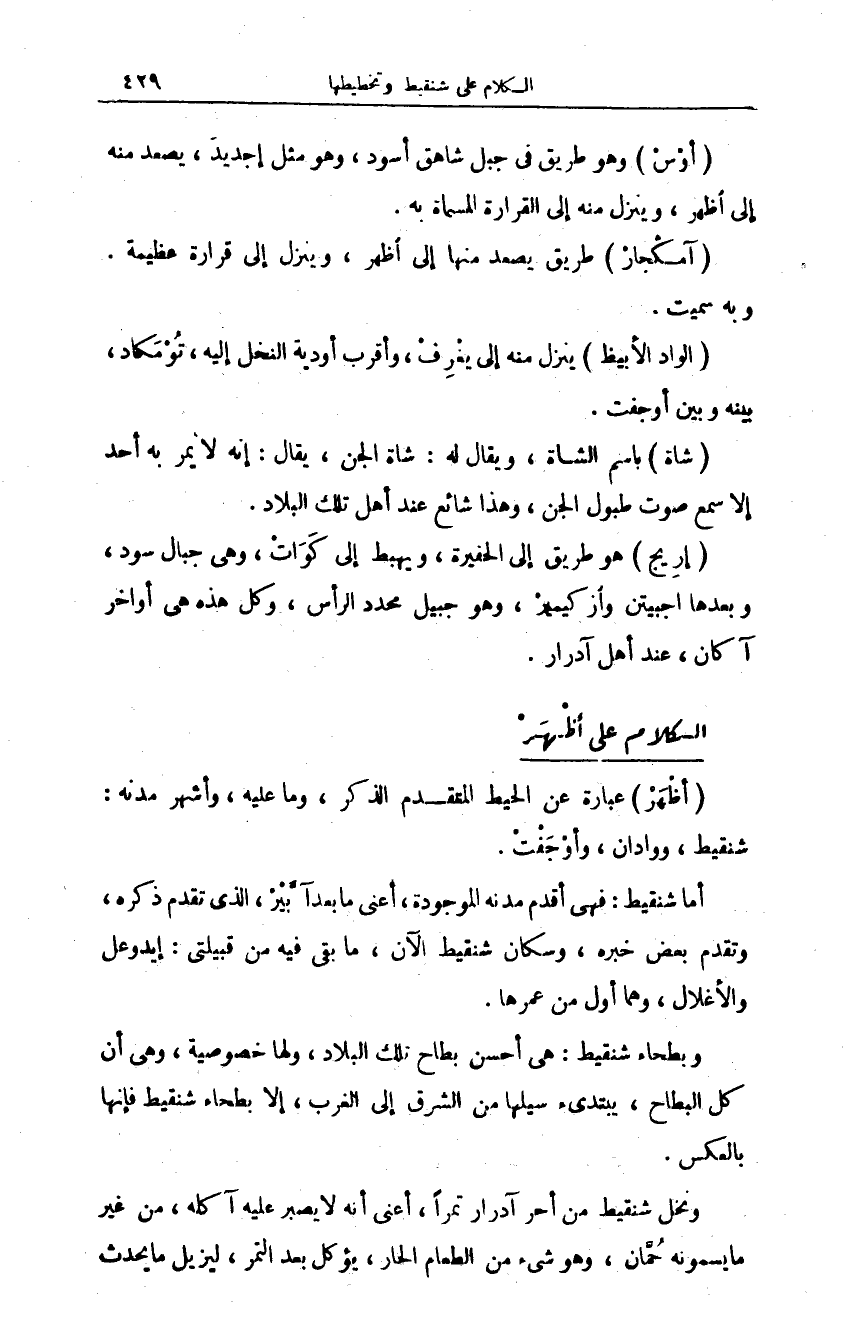 الكلام على شنقيط وتخطيطها ٤٢٩
( أوْسْ ) وهو طريق فى جبل شاهق أسود ، وهو مثل إجديدَ ، يصعد منه
إلى أظهر ، وينزل منه إلى القرارة المسماة به .
( آمـكْجارْ ) طريق يصعد منها إلى أظهر ، وينزل إلى قرارة عظيمة .
وبه سميت .
( الواد الأبيظ ) ينزل منه إلى يغْرِفْ ، وأقرب أودية النخل إليه ، تُوْمَكاد ،
بينه وبين أوجفت .
( شاة ) باسم الشاة ، ويقال له : شاة الجن ، يقال : إنه لا يمر به أحد
إلا سمع صوت طبول الجن ، وهذا شائع عند أهل تلك البلاد .
( إرِيج ) هو طريق إلى الحفيرة ، ويهبط إلى كَوَاتْ ، وهى جبال سود ،
وبعدها اجبيتن وأزكيمبرْ ، وهو جبيل محدد الرأس ، وكل هذه هى أواخر
آكان ، عند أهل آدرار .
الكلام على أظْهَرْ
( أظْهَرْ ) عبارة عن الحيط المتقدم الذكر ، وما عليه ، وأشهر مدنه :
شنقيط ، ووادان ، وأوْجَفْتْ .
أما شنقيط : فهى أقدم مدنه الموجودة ، أعنى مابعد آبَّيْرْ ، الذى تقدم ذكره ،
وتقدم بعض خبره ، وسكان شنقيط الآن ، ما بقى فيه من قبيلتى : إيدوعل
والأغلال ، وهما أول من عمرها .
وبطحاء شنقيط : هى أحسن بطاح تلك البلاد ، ولها خصوصية ، وهى أن
كل البطاح ، يبتدىء سيلها من الشرق إلى الغرب ، إلا بطحاء شنقيط فإنها
بالعكس .
ونخل شنقيط من أحر آدرار تمراً ، أعنى أنه لايصبر عليه آكله ، من غير
مايسمونه حُمَّان ، وهو شىء من الطعام الحار ، يؤكل بعد التمر ، ليزيل مايحدث